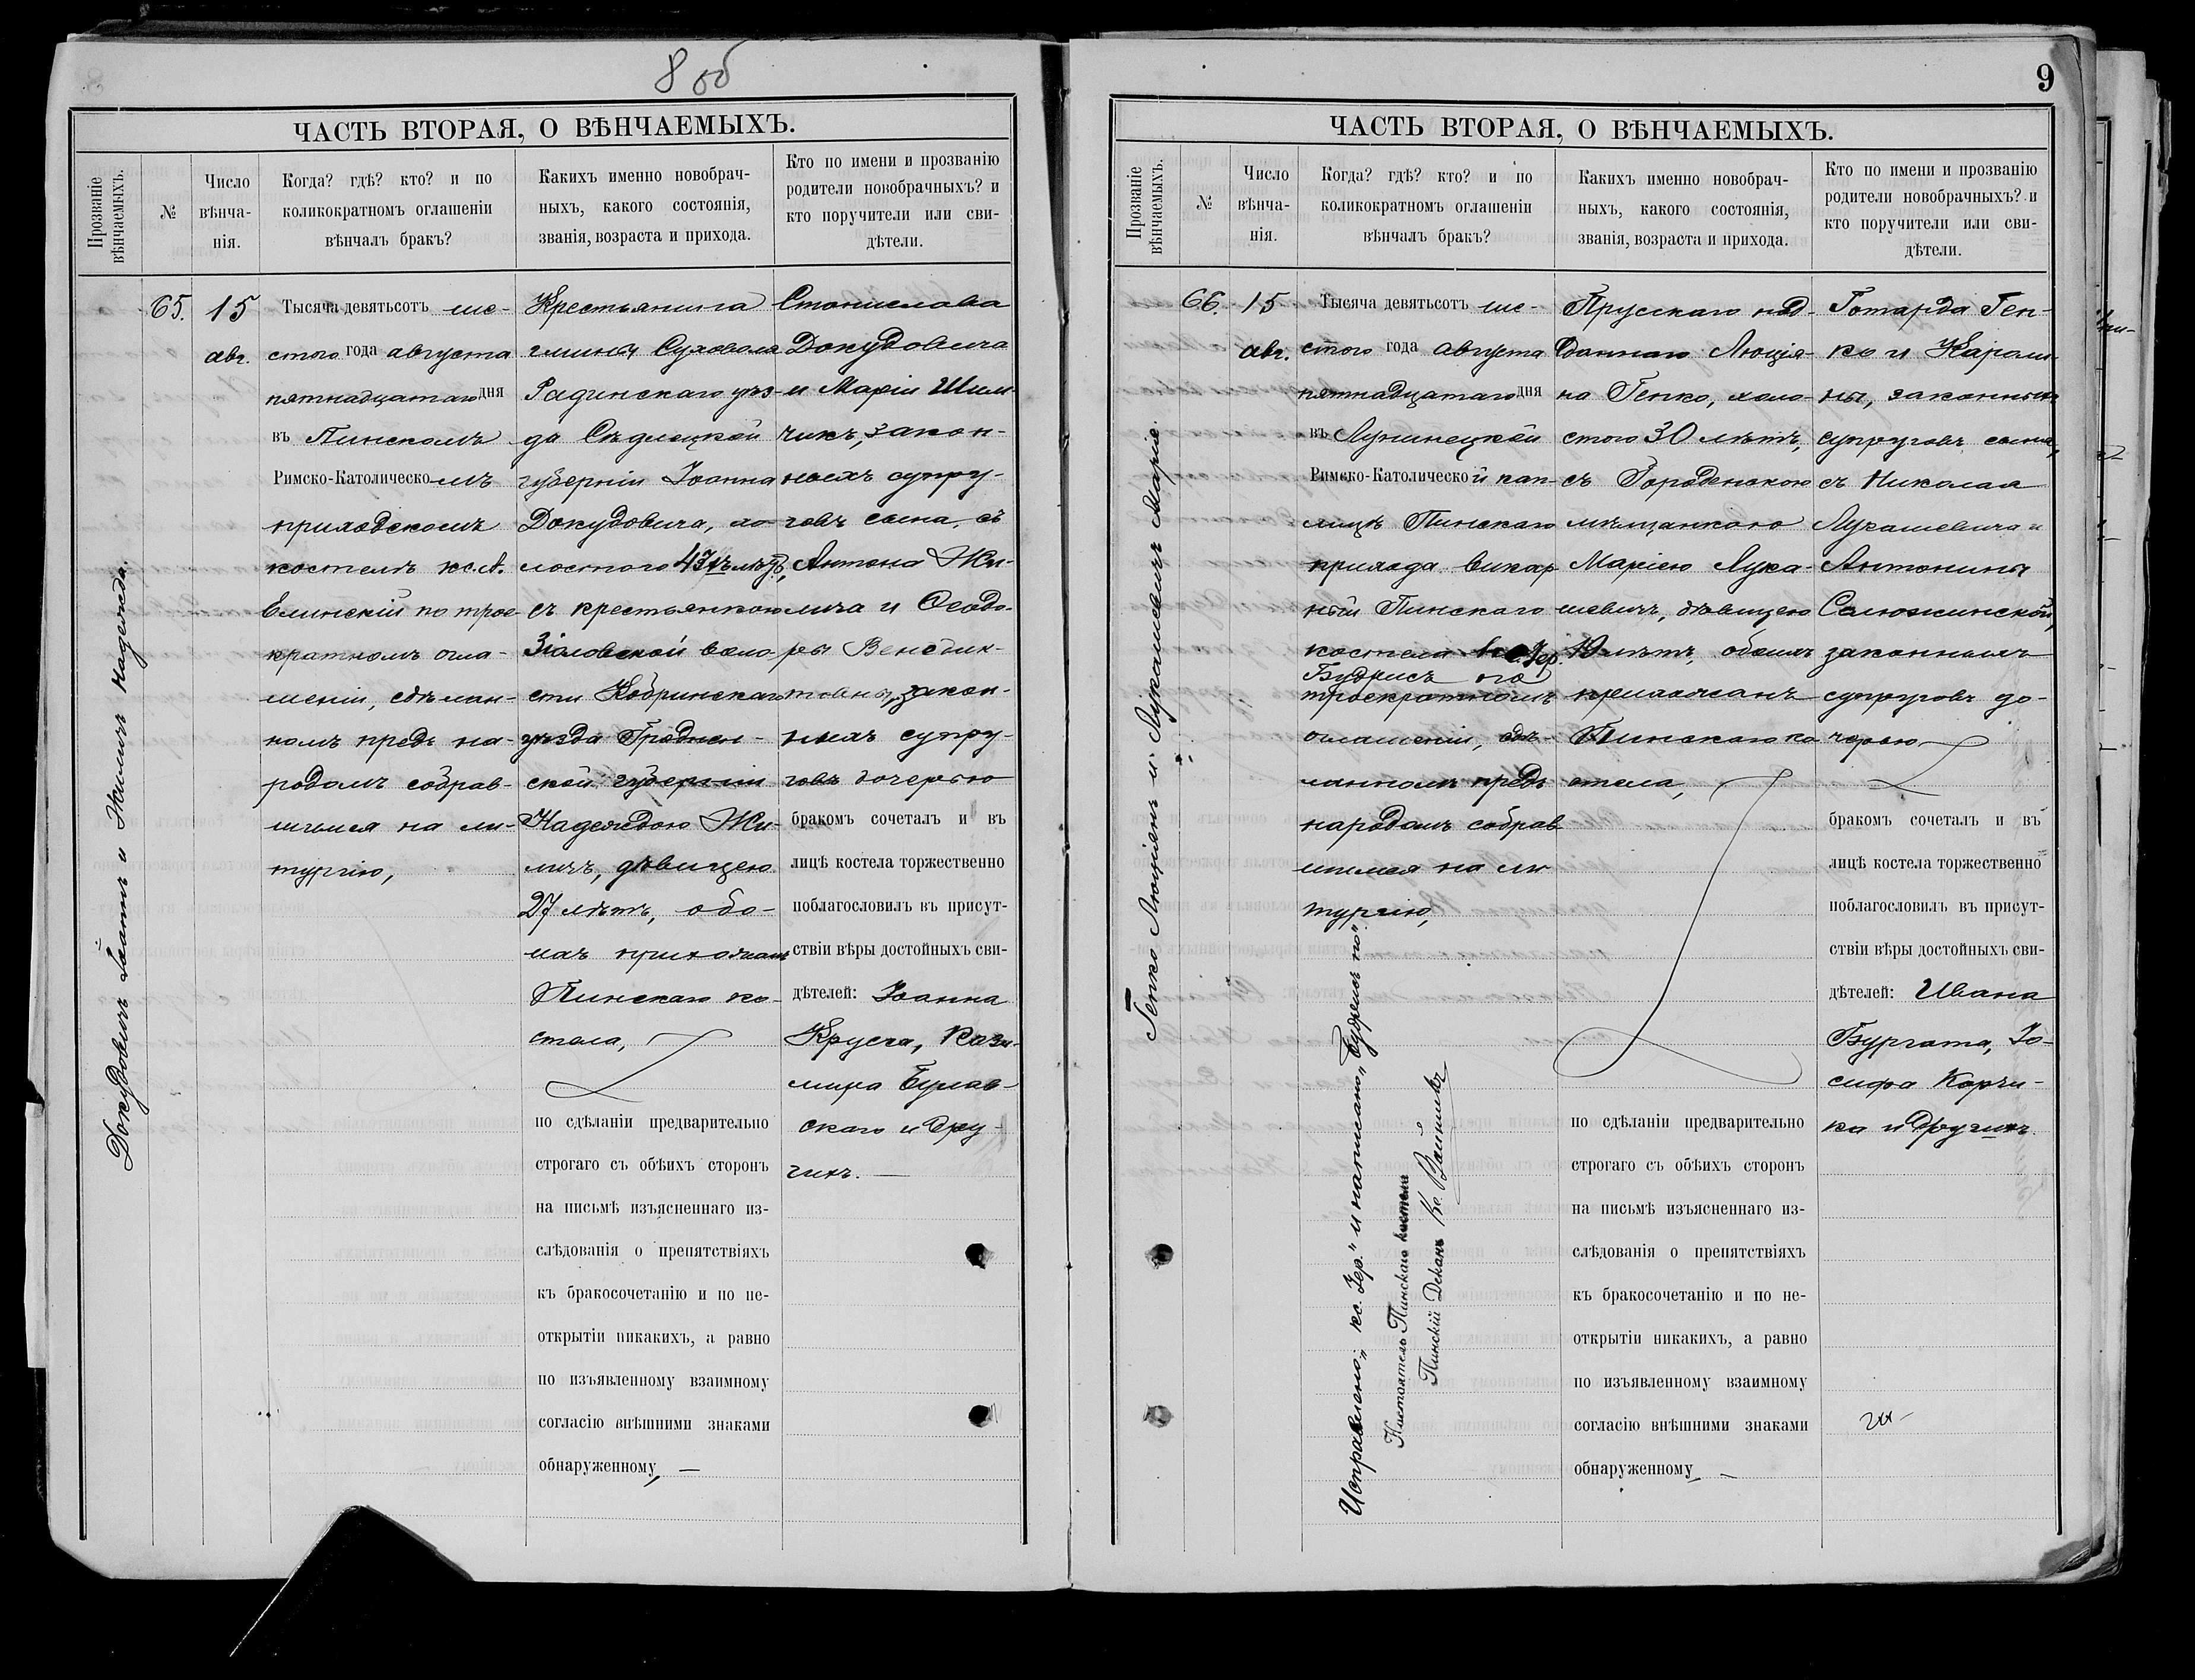 8 об
ЧАСТЬ ВТОРАЯ, О ВѢНЧАЕМЫХЪ.
Прозваніе
вѣнчаемыхъ.
№
Число
вѣнча-
нія.
Когда? гдѣ? кто? и по
коликократномъ оглашеніи
вѣнчалъ бракъ?
Какихъ именно новобрач-
ныхъ, какого состоянія,
званія, возраста и прихода.
Кто по имени и прозванію
родители новобрачныхъ? и
кто поручители или сви-
дѣтели.
Докудовичъ Іоаннъ и Жиличъ Надежда.
65.
15
авг.
Тысяча девятьсотъ ше-
стого года августа
пятнадцатаго дня
въ Пинскомъ
Римско-Католическомъ
приходскомъ
костелѣ кс. А.
Елинскій по трое
кратномъ огла-
шеніи, сдѣлан-
номъ предъ на-
родомъ собрав-
шимся на ли-
тургію,
Крестьянина
гмины Суховоля
Радинскаго уѣз-
да Сѣдлецкой
губерніи Іоанна
Докудовича, хо-
лостого 43 лѣтъ,
съ крестьянкою
Зіоловской воло-
сти Кобринскаго
уѣзда Гроднен-
ской губерніи
Надеждою Жи-
личъ, дѣвицею
27 лѣтъ, обо-
ихъ прихожанъ
Пинскаго ко-
стела,
по сдѣланіи предварительно
строгаго съ обѣихъ сторонъ
на письмѣ изъясненнаго из-
слѣдованія о препятствіяхъ
къ бракосочетанію и по не-
открытіи никакихъ, а равно
по изъявленному взаимному
согласію внѣшними знаками
обнаруженному, —
Станислава
Докудовича
и Маріи Шим-
чикъ, закон-
ныхъ супру-
говъ сына, съ
Антона Жи-
лича и Ѳеодо-
ры Венедик-
товны, закон-
ныхъ супру-
говъ дочерью
бракомъ сочеталъ и въ
лицѣ костела торжественно
поблагословилъ въ присут-
ствіи вѣры достойныхъ сви-
дѣтелей: Іоанна
Круса, Кази-
мира
скаго и дру-
гихъ. —
9
ЧАСТЬ ВТОРАЯ, О ВѢНЧАЕМЫХЪ.
Прозваніе
вѣнчаемыхъ.
№
Число
вѣнча-
нія.
Когда? гдѣ? кто? и по
коликократномъ оглашеніи
вѣнчалъ бракъ?
Какихъ именно новобрач-
ныхъ, какого состоянія,
званія, возраста и прихода.
Кто по имени и прозванію
родители новобрачныхъ? и
кто поручители или сви-
дѣтели.
Генко Люціянъ и Лукашевичъ Марія.
66.
15
авг.
Тысяча девятьсотъ ше-
стого года августа
пятнадцатаго дня
въ Лунинецкой
Римско-Католической кап-
лицѣ Пинскаго
прихода викар
ный Пинскаго
костела кс. Іер.
Будрисъ по
троекратномъ
оглашеніи, сдѣ-
ланномъ предъ
народомъ собрав
шимся на ли
тургію,
Исправлено: „кс. Іер.“ и написано „Будрисъ по“.
Настоятель Пинскаго костела
Пинскій Деканъ Кс.
Прусскаго под-
даннаго Люція-
на Генко, холо-
стого 30 лѣтъ,
съ Городенскою
мѣщанкою
Маріею Лука-
шевичъ, дѣвицею
19 лѣтъ, обоихъ
прихожанъ
Пинскаго ко
стела,
по сдѣланіи предварительно
строгаго съ обѣихъ сторонъ
на письмѣ изъясненнаго из-
слѣдованія о препятствіяхъ
къ бракосочетанію и по не-
открытіи никакихъ, а равно
по изъявленному взаимному
согласію внѣшними знаками
обнаруженному —
Готарда Ген-
ко и Кароли-
ны, законныхъ
супруговъ сына,
съ Николая
Лукашевича и
Антонины
законныхъ
супруговъ до-
черью
бракомъ сочеталъ и въ
лицѣ костела торжественно
поблагословилъ въ присут-
ствіи вѣры достойныхъ сви-
дѣтелей: Ивана
Бургата, Іо-
сифа Карчи-
ка и другихъ.